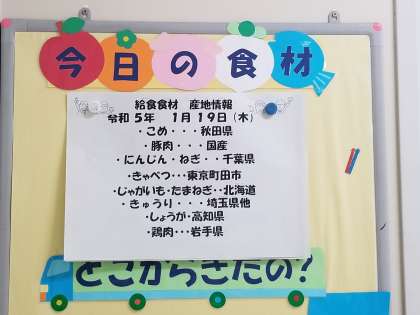 今日の食材
給食食材 産地情報
令和 5年 1月 19日 (木)
・こめ・・・秋田県
・豚肉・・・国産
・にんじん・ねぎ・・千葉県
・きゃべつ・・・東京町田市
・じゃがいも・たまねぎ・・北海道
・きゅうり・・・・埼玉県他
・しょうが・高知県
・鶏肉・・・岩手県
どこからきたの?